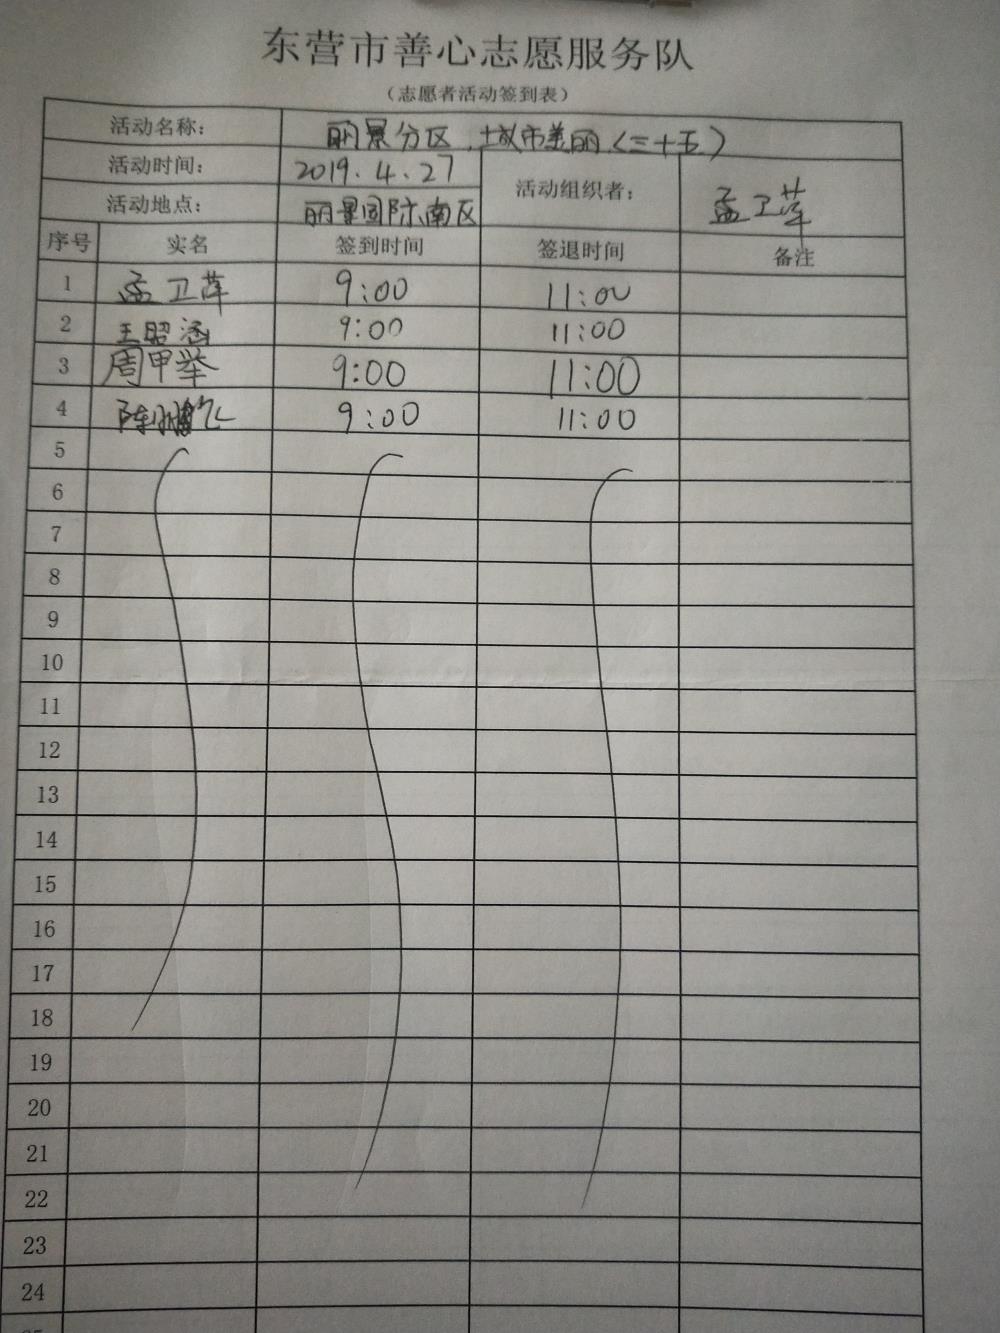 东营市善心志愿服务队
（志愿者活动签到表）
活动名称： 丽景分区，城市美丽（三十五）
活动时间： 2019.4.27 活动组织者： 孟卫萍
活动地点： 丽景国际南区
序号 实名 签到时间 签退时间 备注
1 孟卫萍 9:00 11:00
2 王昭涵 9:00 11:00
3 周甲举 9:00 11:00
4 陈鹏飞 9:00 11:00
5
6
7
8
9
10
11
12
13
14
15
16
17
18
19
20
21
22
23
24